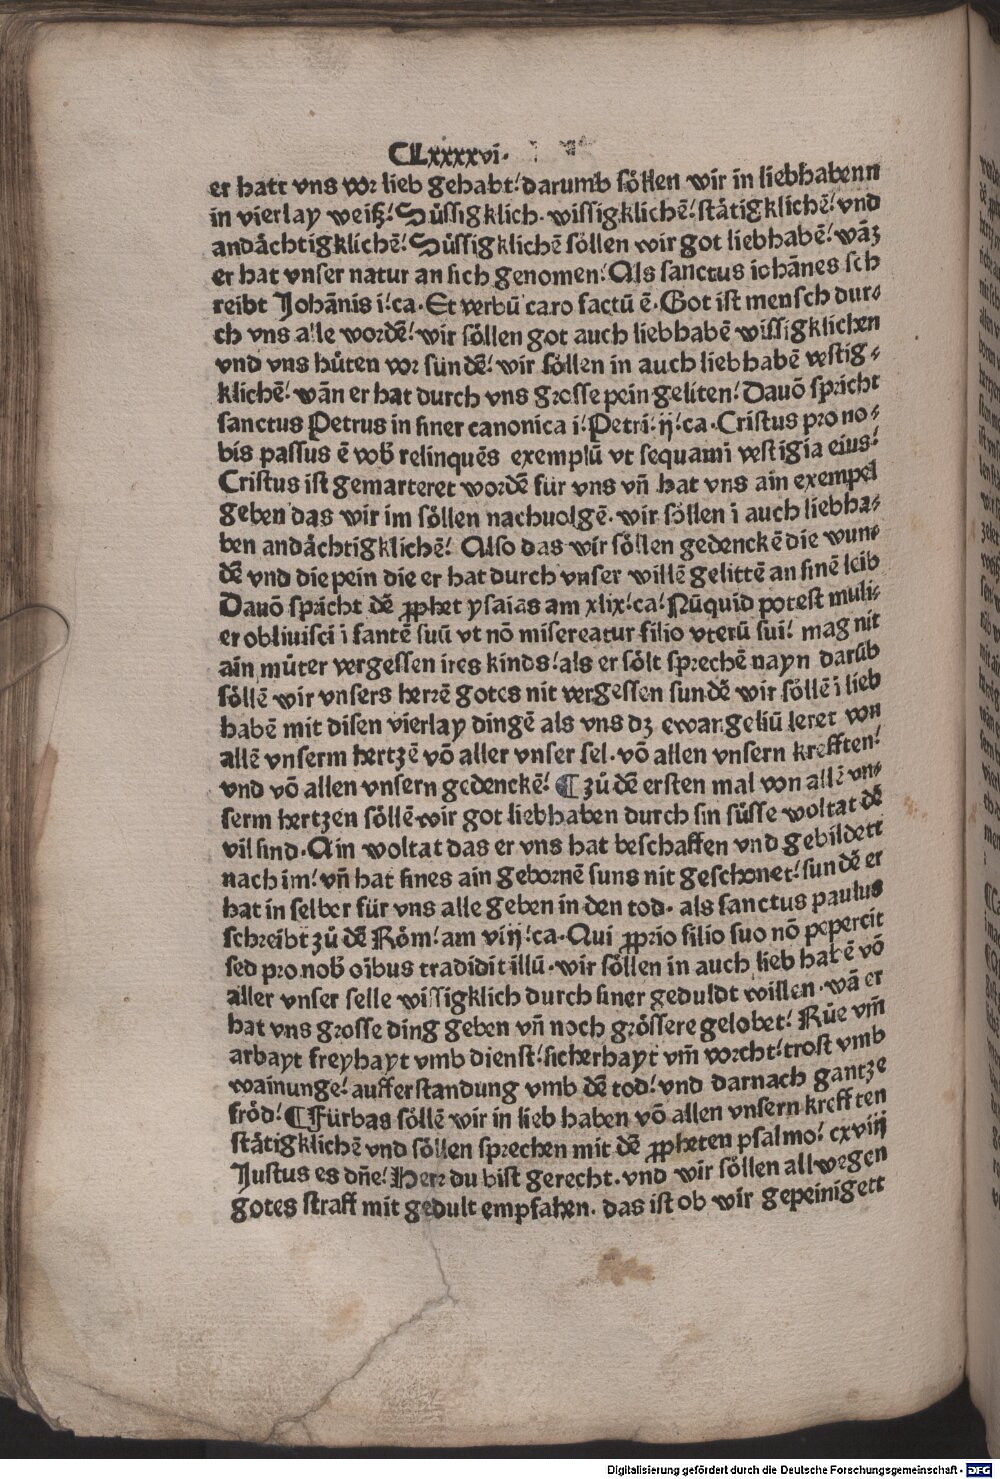 CLxxxxvi.
er hatt vns vor lieb gehabt! darumb söllen wir in liebhabenn
in vierlay weiß! Süssigklich. wissigklichē! stätigklichē! vnd
andåchtigklichē! Süssigklichē söllen wir got liebhabē! wāʒ
er hat vnser natur an sich genomen! Als sanctus iohānes sch
reibt Johānis i! ca. Et verbū caro factū ē. Got ist mensch dur⸗
ch vns alle wordē! wir söllen got auch liebhabē wissigklichen
vnd vns hůten vor sündē! wir söllen in auch liebhabē vestig⸗
klichē! wān er hat durch vns grosse pein geliten! Dauō spricht
sanctus Petrus in siner canonica i! Petri! ij! ca. Cristus pro no⸗
bis passus ē vob̄ relinquēs exemplū vt sequami vestigia eius!
Cristus ist gemarteret wordē für vns vn̄ hat vns ain exempel
geben das wir im söllen nachuolgē. wir söllen ī auch liebha⸗
ben andåchtigklichē! Also das wir söllen gedenckē die wun⸗
dē vnd die pein die er hat durch vnser willē gelittē an sinē leib
Dauō spricht dē ꝓphet ysaias am xlix! ca! Nūquid potest muli⸗
er obliuisci i fantē suū vt nō misereatur filio vterū sui! mag nit
ain můter vergessen ires kinds! als er sölt sprechē nayn darūb
söllē wir vnsers herrē gotes nit vergessen sundē wir söllē ī lieb
habē mit disen vierlay dingē als vns dʒ ewangeliū leret von
allē vnserm hertzē vō aller vnser sel. vō allen vnsern krefften!
vnd vō allen vnsern gedenckē! ¶ zů dē ersten mal von allē vn⸗
serm hertzen söllē wir got liebhaben durch sin süsse woltat dē
vil sind. Ain woltat das er vns hat beschaffen vnd gebildett
nach im! vn̄ hat sines ain gebornē suns nit geschonet! sun dē er
hat in selber für vns alle geben in den tod. als sanctus paulus
schreibt zů dē Röm! am viij! ca. Qui ꝓprio filio suo nō pepercit
sed pro nob̄ oībus tradidit illū. wir söllen in auch lieb habē vō
aller vnser selle wissigklich durch siner geduldt willen. wā er
hat vns grosse ding geben vn̄ noch grössere gelobet! Růe vm̄
arbayt freyhayt vmb dienst! sicherhayt vm̄ vorcht! trost vmb
wainunge! aufferstandung vmb dē tod! vnd darnach gantze
fröd! ¶ Fürbas söllē wir in lieb haben vō allen vnsern krefften
stätigklichē vnd söllen sprechen mit dē ꝓpheten psalmo! cxviij
Justus es dn̄e! Herr du bist gerecht. vnd wir söllen allwegen
gotes straff mit gedult empfahen. das ist ob wir gepeinigett
Digitalisierung gefördert durch die Deutsche Forschungsgemeinschaft - DFG